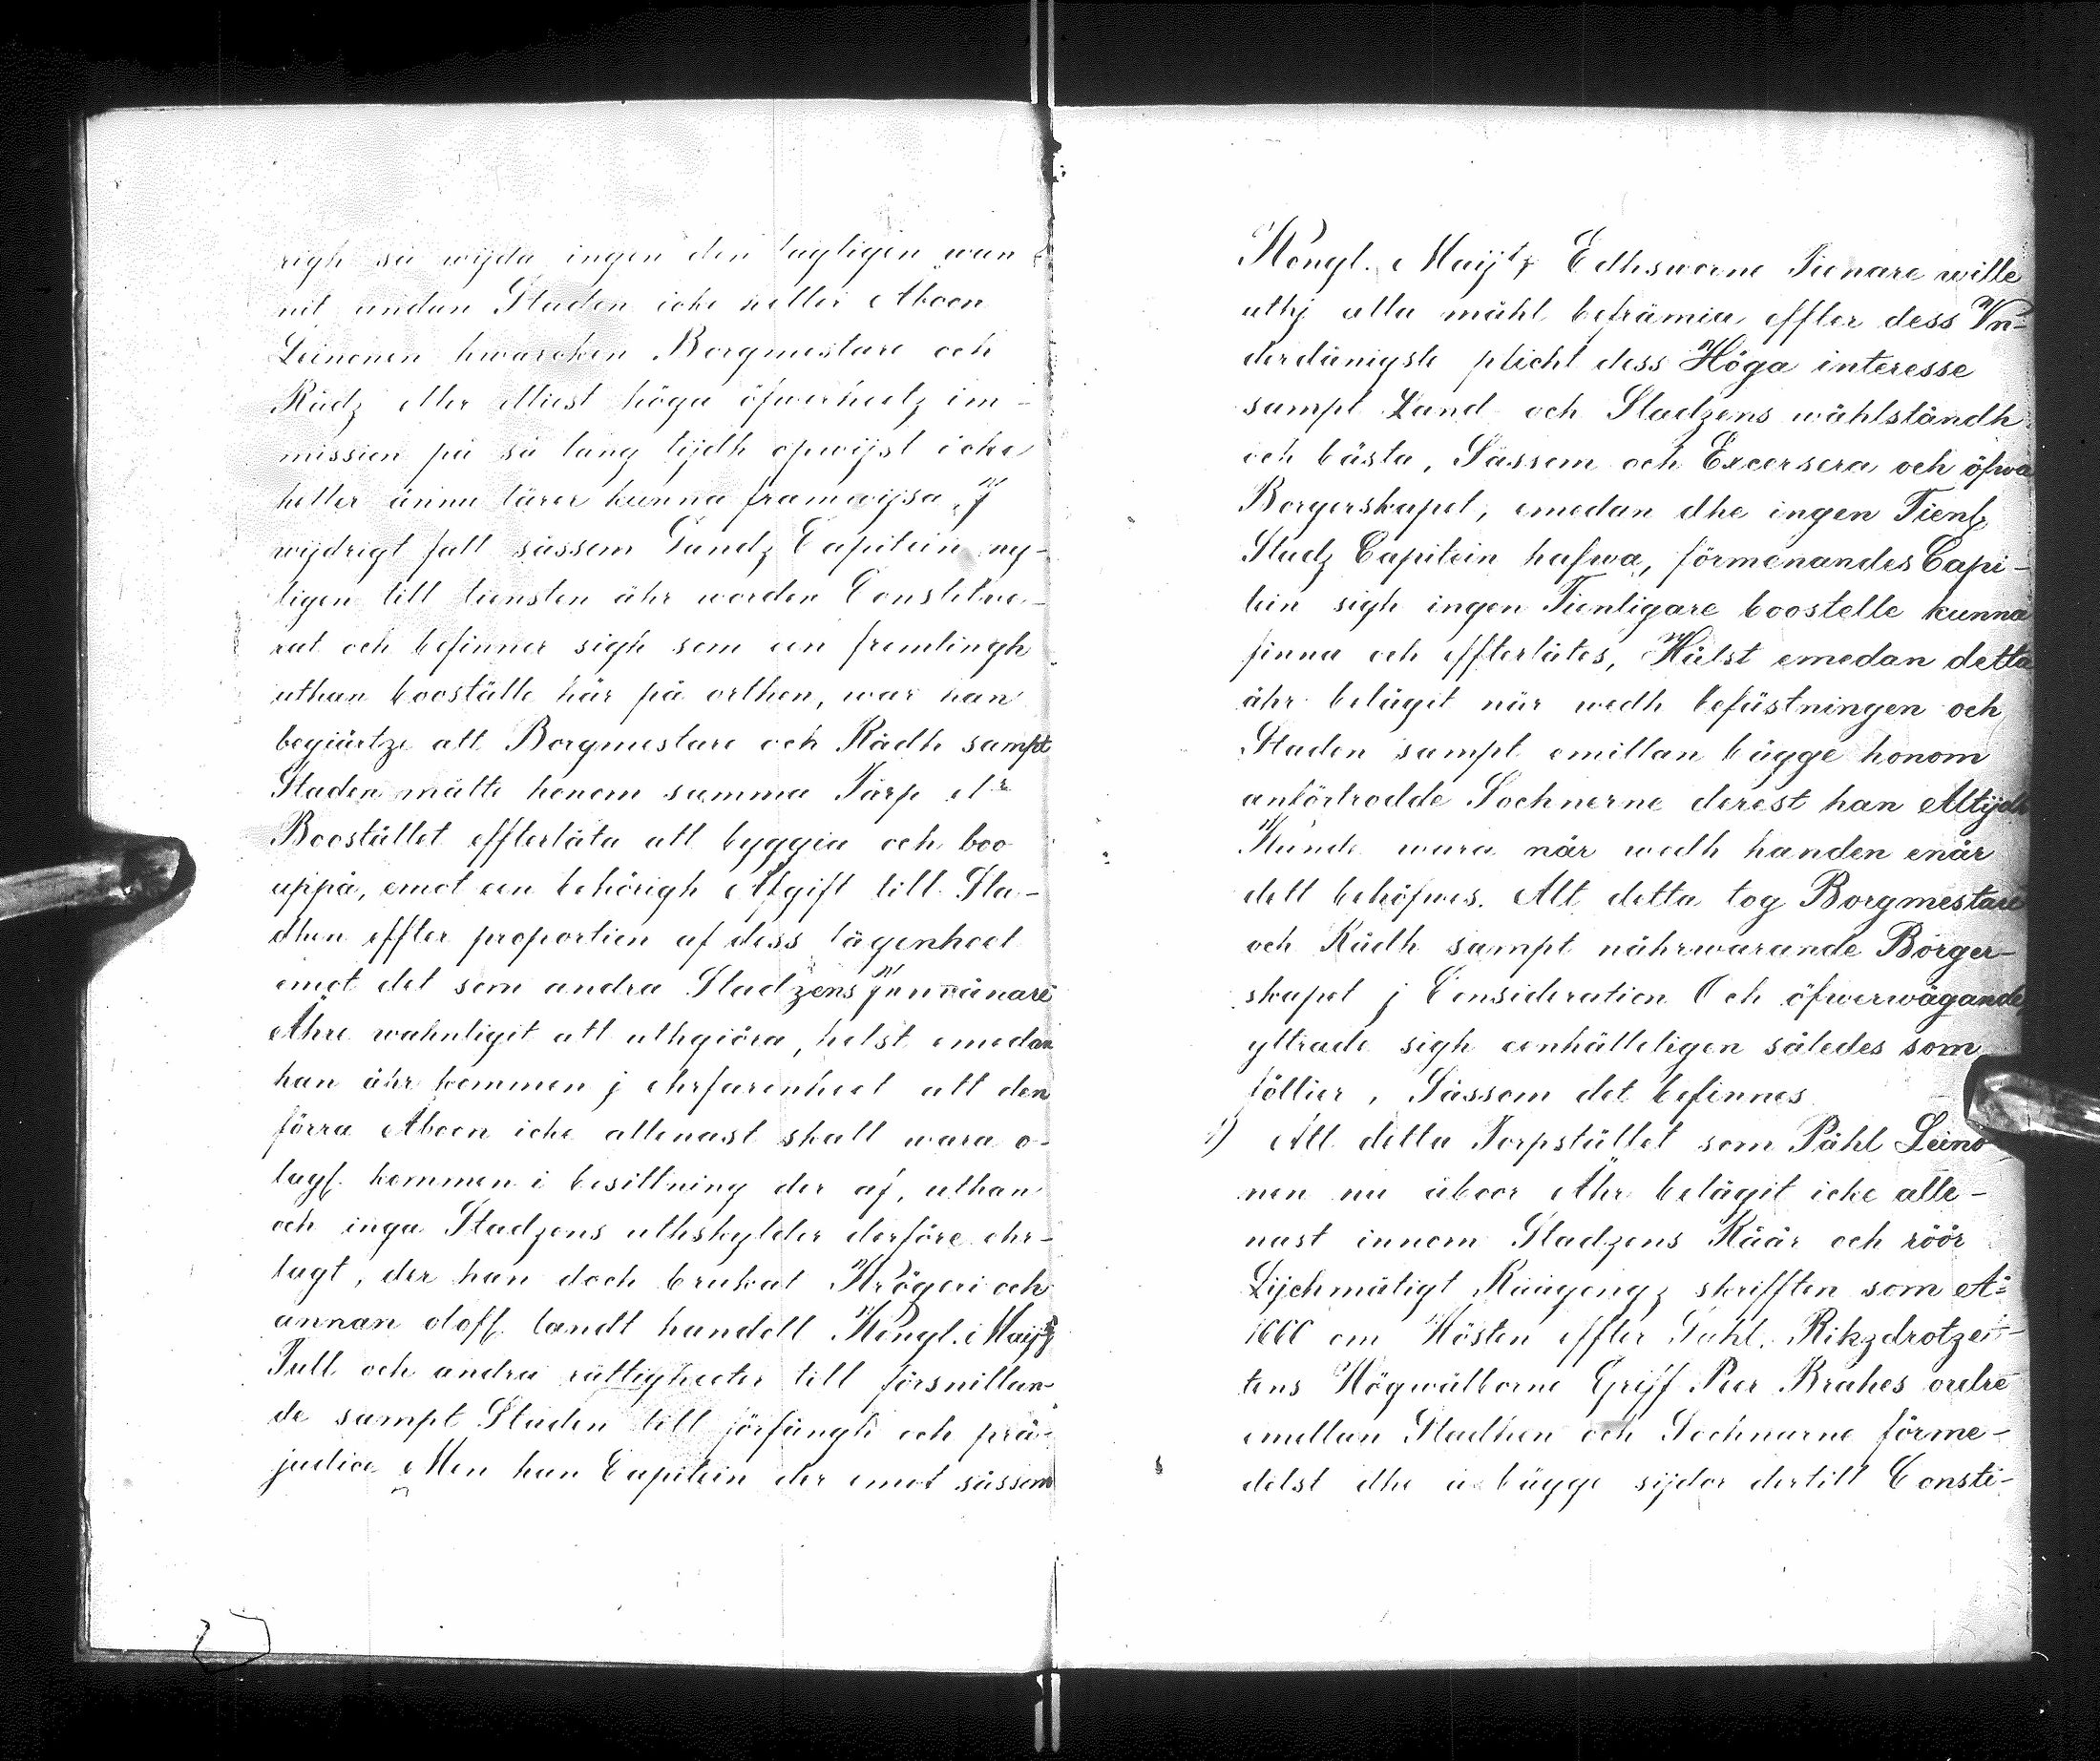 righ så wijda ingen den lagligen wun
nit undan Staden icke heller Åboon
Leinonen hwarcken Borgmestare och
Rådz eller Eliest höga öfwerheetz im-
mission på så lång tijdh opwijst icke
heller ännu lärer kunna framwijsa, J
wijdrigt fall såssom Landz Capitein ny-
ligen till tiensten ähr worden Constitue-
rat och befinner sigh som een fremlingh
uthan booställe här på orthen, war han
begiärtze att Borgmestare och Rådh sampt
Staden måtte honom samma Tårp elr
Boostället effterlåta att byggia och boo
uppå, emot een behörigh Afgift till Sta-
dhen effter proportion af dess lägenheet
emot det som andra Stadzens Jnvånare
Ähre wahnligit att uthgiöra, helst emedan
han ähr kommen j ehrfarenheet att den
förra Åboon icke allenast skall wara o-
lagl. kommen i besittning der af, uthan
och inga Stadzens uthskylder derföre ehr-
lagt, der han doch brukat Krögeri och
annan olofl. landt handell Kongl. Maijtz
Tull och andra rättigheeter till försnillan-
de sampt Staden till förfångh och præ-
judice Men han Capitein der emot såssom
Kongl. Maijtz Edhsworne Tienare wille
uthj alla måhl befrämia effter dess Vn-
derdånigste plicht dess Höga interesse
sampt Land och Stadzens wählståndh
och bästa, Såssom och Excersera och öfwa
Borgerskapet, emedan dhe ingen Tienl.
Stadz Capitein hafwa, förmenandes Capi-
tein sigh ingen Tienligare boostelle kunna
finna och effterlåtes, Hälst emedan detta
ähr belägit när wedh befästningen och
Staden sampt emillan bägge honom
anförtrodde Sochnerne derest han Altijdh
Kunde wara när wedh handen enär
dett behöfwes. Alt detta tog Borgmestare
och Rådh sampt nährwarande Borger-
skapet j Consideration Och öfwerwägande
yttrade sigh eenhälleligen således som
föllier, Såssom det befinnes
1) Att detta Torpstället som Påhl Leino-
nen nu åboor Ähr belägit icke alle-
nast innom Stadzens Råår och röör
Lijchmätigt Råågongz skrifften som Ao
1666 om Hösten effter Sahl. Rikzdrotze-
tens Högwälborne Greff Peer Brahes ordre
emellan Stadhen och Sochnarne förme-
delst dhe å bägge sijdor dertill Consti-